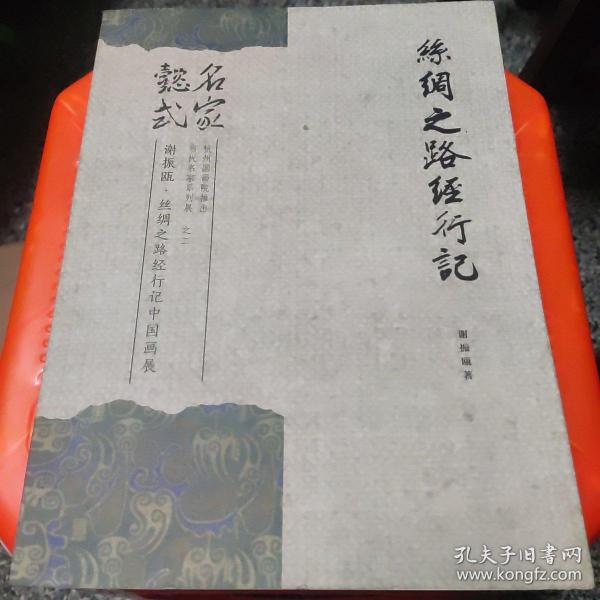 絲綢之路經行記
謝振甌著
名家
懿式
杭州画院推出
当代名家系列展 之二
谢振瓯·丝绸之路经行记中国画展
孔夫子旧书网
www.kongfz.com